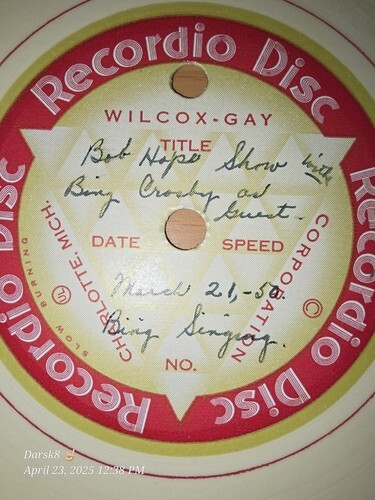 Recordio Disc
WILCOX-GAY
TITLE
Bob Hope Show with
Bing Crosby as
Guest.
DATE SPEED
March 21,-50
Bing Singing.
NO.
CHARLOTTE, MICH.
CORPORATION
SLOW BURNING
UL
©
Recordio Disc
Recordio Disc
Recordio Disc
Darsk8
April 23, 2025 12:38 PM